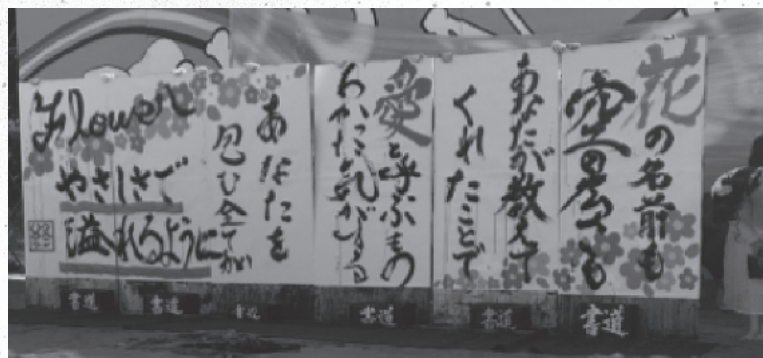 花の名前も
空の
あなたが教えて
くれたことで
愛と呼ぶもの
わかった気がする
あなたを
包む全てが
Flower
やさしさで
溢れるように
書道
書道
書道
書道
書道
書道